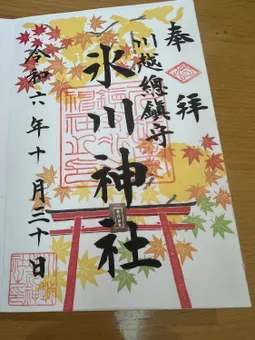 奉拝
川越總鎮守
氷川神社
令和六年十月三十日